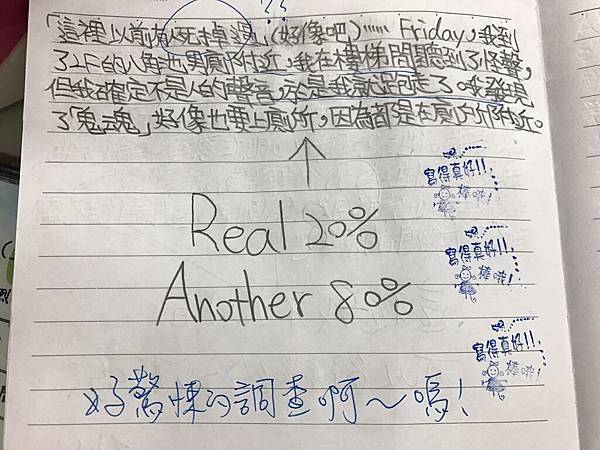 ??
「這裡以前有人死掉過」(好像吧)⋯⋯ Friday, 我到
了2F的八角池男廁附近，我在樓梯間聽到了怪聲，
但我確定不是人的聲音，於是我就跑走了。我發現
了「鬼魂」好像也要上廁所，因為都是在廁所附近。
Real 20%
Another 80%
寫得真好!!
棒啦!
寫得真好!!
棒啦!
寫得真好!!
棒啦!
好驚悚的調查啊～嗚!